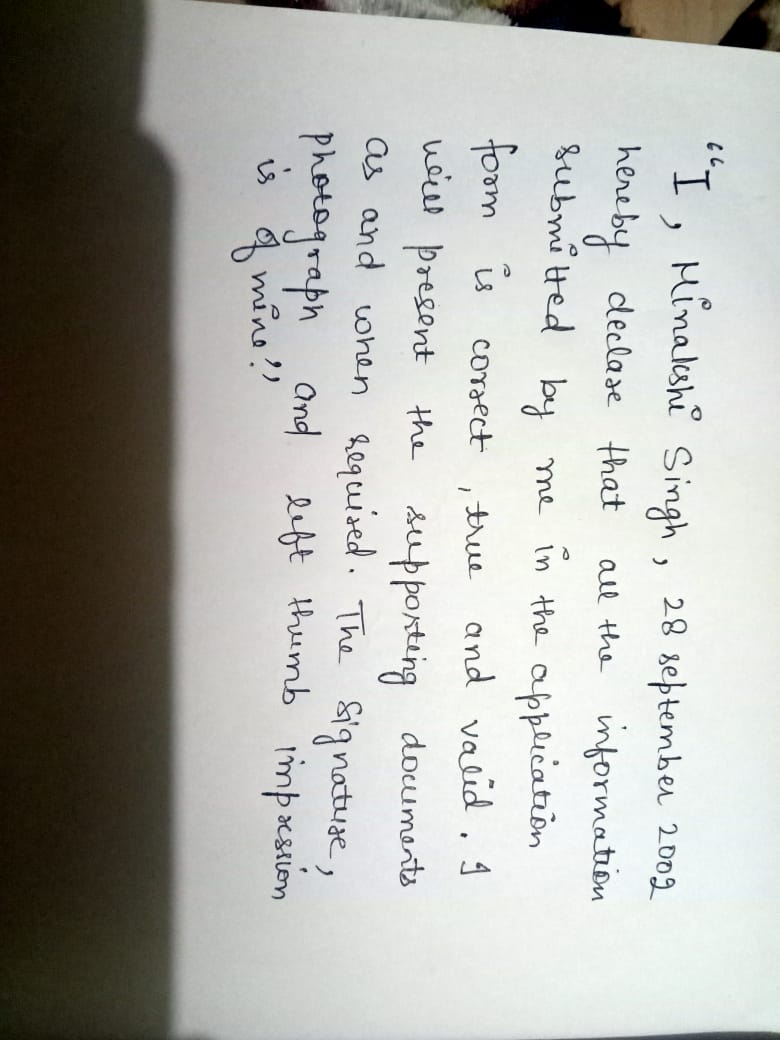 "I, Minakshi Singh, 28 september 2002
hereby declare that all the information
submitted by me in the application
form is correct, true and valid. I
will present the supporting documents
as and when required. The Signature,
photograph and left thumb impression
is of mine."